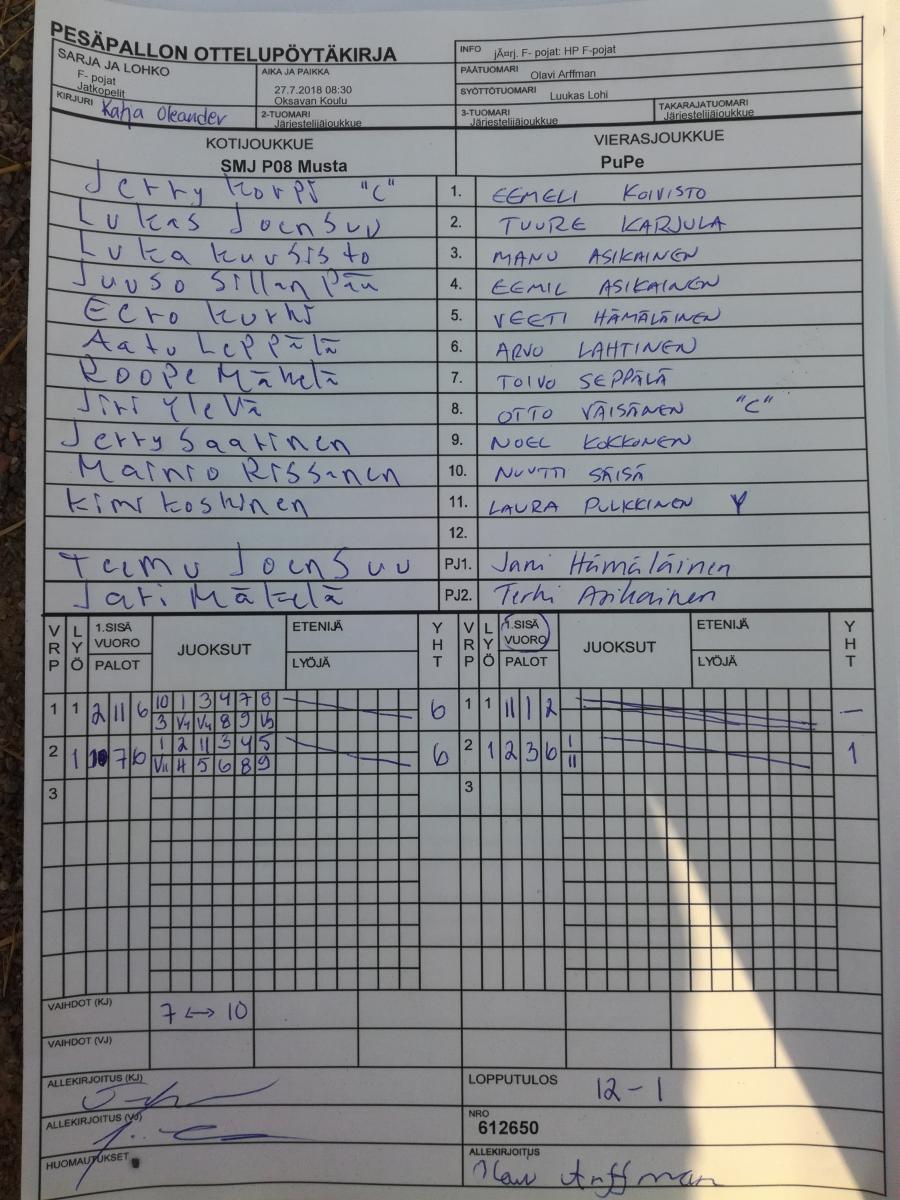 PESÄPALLON OTTELUPÖYTÄKIRJA
SARJA JA LOHKO
F- pojat
Jatkopelit
AIKA JA PAIKKA
27.7.2018 08:30
Oksavan Koulu
INFO jÃ¤rj. F- pojat: HP F-pojat
PÄÄTUOMARI Olavi Arffman
SYÖTTÖTUOMARI Luukas Lohi
KIRJURI Katja Oleander
2-TUOMARI
Järjestelijäjoukkue
3-TUOMARI
Järjestelijäjoukkue
TAKARAJATUOMARI
Järjestelijäjoukkue
KOTIJOUKKUE
SMJ P08 Musta
VIERASJOUKKUE
PuPe
Jerry Korpi "C" 1. EEMELI KOIVISTO
Lukas Joensuu 2. TUURE KARJULA
Luka kuusisto 3. MANU ASIKAINEN
Juuso Sillanpää 4. EEMIL ASIKAINEN
Eero kurki 5. VEETI HÄMÄLÄINEN
Aatu Leppälä 6. ARVO LAHTINEN
Roope Mäkelä 7. TOIVO SEPPÄLÄ
Jiri Ylevä 8. OTTO VÄISÄNEN "C"
Jerry Saarinen 9. NOEL KOKKONEN
Mainio Rissanen 10. NUUTTI SÄISÄ
Kimi koskinen 11. LAURA PULKKINEN Y
12.
Teemu Joensuu PJ1. Jani Hämäläinen
Jari Mäkelä PJ2. Terhi Asikainen
VRP LYÖ 1.SISÄ VUORO PALOT JUOKSUT ETENIJÄ LYÖJÄ YHT VRP LYÖ 1.SISÄ VUORO PALOT JUOKSUT ETENIJÄ LYÖJÄ YHT
1 1 2 11 6 10 1 3 4 7 8 6 1 1 11 1 2 —
3 V4 V4 8 9 V5
2 1 7 6 1 2 11 3 4 5 6 2 1 2 3 6 1 1
V11 4 5 6 8 9 11
3 3
VAIHDOT (KJ) 7 <-> 10
VAIHDOT (VJ)
ALLEKIRJOITUS (KJ)
LOPPUTULOS 12 - 1
ALLEKIRJOITUS (VJ)
NRO
612650
HUOMAUTUKSET
ALLEKIRJOITUS
Olavi Arffman